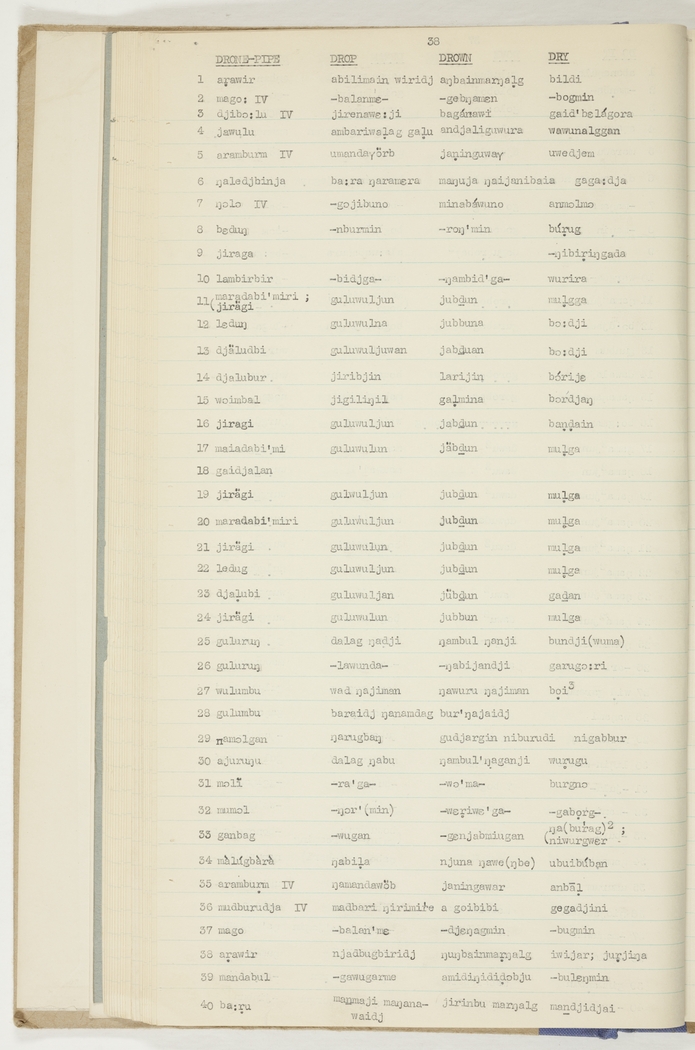 38
DRONE-PIPE DROP DROWN DRY
1 aṛawir abilimain wiridj aŋbainmaṛŋalg bildi
2 mago: IV -balanme- -gebŋamen -bogmin
3 djibo:lu IV jirenawe:ji bagánawï gaid'bəlágora
4 jawulu ambariwaḷag gaḷu andjaliguwura wawunalggan
5 aramburm IV umandaɣörb jaṇinguwaɣ uwedjem
6 ŋaledjbinja ba:ra ŋaramera maṇuja ŋaijanibaia gaga:dja
7 ŋolo IV -gojibuno minabáwuno anmolmo
8 beduŋ -nburmin -roŋ'min búṛug
9 jiraga -ŋibiṛiŋgada
10 lambirbir -bidjga- -ŋambid'ga- wurira
11 (maradabi'miri ; guluwuljun jubḏun muḷgga
jirägi
12 leduŋ guluwulna jubbuna bo:dji
13 djäludbi guluwuljuwan jabḏuan bo:dji
14 djalubur. jiribjin larijin bórije
15 woimbal jigiliŋil gaḷmina bordjaŋ
16 jiragi guluwuljun jabḏun baṇdain
17 maiadabi'mi guluwulun jäbḏun muḷga
18 gaidjalan
19 jirägi gulwuljun jubḏun muḷga
20 maradabi'miri guluwuljun jubḏun muḷga
21 jirägi guluwulun jubḏun muḷga
22 ledug guluwuljun jubḏun muḷga
23 djaḷubi guluwuljan jübḏun gaḏan
24 jirägi guluwulun jubbun mulga
25 guluruŋ dalag ŋadji ŋambul ŋanji bundji(wuma)
26 guluruŋ -lawunda- -ŋabijandji garugo:ri
27 wulumbu wad ŋajiman ŋawuru ŋajiman bọi³
28 gulumbu baraidj ŋanamdag bur'ŋajaidj
29 ŋamolgan ŋarugbaŋ gudjargin niburudi nigabbur
30 ajuruŋu dalag ŋabu ŋambul'ŋaganji wuṛugu
31 molï -ra'ga- -wo'ma- burgno
32 mumol -ŋor'(min) -weṛiwe'ga- -gaboṛg-
33 ganbag -wugan -genjabmiŋgan (ŋa(buŕag)² ;
niwurgwer
34 màlúgbàrà ŋabiḷa njuna ŋawe(ŋbe) ubuibúḅan
35 aramburṃ IV ŋamandawöb janingawar anbāl
36 mudburudja IV madbari ŋirimire a goibibi gegadjini
37 mago -balan'me -djeŋagmin -bugmin
38 aṛawir njadbugbiridj ŋuŋbainmaṛŋalg iwijar; juṛjiŋa
39 mandabul -gawugarme amidiŋididobju -buleŋmin
40 ba:ṛu maṇmaji maŋana- jirinbu marŋalg maṇdjidjai
waidj